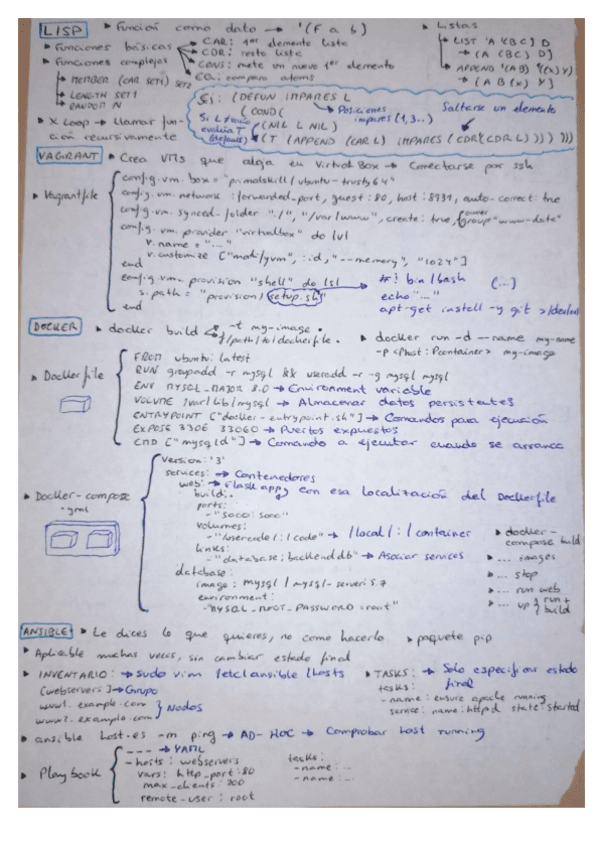 LISP ▸ Función como dato → '(F a b)
▸ Listas
▸ Funciones básicas
→ CAR: 1er elemento lista
→ CDR: resto lista
→ CONS: mete un nuevo 1er elemento
→ EQ: compara atoms
LIST 'A '(B C) D
→ (A (B C) D)
APPEND '(A B) '((X) Y)
→ (A B (X) Y)
▸ Funciones complejas
MEMBER (CAR SET1) SET2
LENGTH SET1
RANDOM N
▸ X Loop → Llamar función recursivamente
Ej: (DEFUN IMPARES L
(COND(
Posiciones impares (1,3..)
Saltarse un elemento
(NIL L NIL)
(T (APPEND (CAR L) IMPARES (CDR(CDR L)))) )))
VAGRANT ▸ Crea VMs que aloja en VirtualBox → Conectarse por ssh
▸ Vagrantfile
config.vm.box = "primalskill/ubuntu-trusty64"
config.vm.network :forwarded_port, guest:80, host:8931, auto-correct: true
config.vm.synced-folder "./", "/var/www", create: true, group "www-data"
owner
config.vm.provider "virtualbox" do |v|
v.name = "..."
v.customize ["modifyvm", :id, "--memory", "1024"]
end
config.vm.provision "shell" do |s|
s.path = "provision/setup.sh"
end
#! bin/bash (...)
echo "..."
apt-get install -y git >/dev/null
DOCKER ▸ docker build
-t my-image .
-f /path/to/dockerfile .
▸ docker run -d --name my-name
-p <Phost:Pcontainer> my-image
▸ Dockerfile
FROM ubuntu:latest
RUN groupadd -r mysql && useradd -r -g mysql mysql
ENV MYSQL_MAJOR 8.0 → Environment variable
VOLUME /var/lib/mysql → Almacenar datos persistentes
ENTRYPOINT ["docker-entrypoint.sh"] → Comandos para ejecución
EXPOSE 3306 33060 → Puertos expuestos
CMD ["mysqld"] → Comando a ejecutar cuando se arranca
▸ Docker-compose .yml
version: '3'
services: → Contenedores
web: → Flask app con esa localización del Dockerfile
build: .
ports:
- "5000:5000"
volumes:
- "/usercode/:/code" → /local/:/container
links:
- "database:backenddb" → Asociar services
database:
image: mysql/mysql-server:5.7
environment:
- "MYSQL_ROOT_PASSWORD=root"
▸ docker-compose build
▸ ... images
▸ ... stop
▸ ... run web
▸ ... up } run + build
ANSIBLE ▸ Le dices lo que quieres, no como hacerlo ▸ paquete pip
▸ Aplicable muchas veces, sin cambiar estado final
▸ INVENTARIO: → sudo vim /etc/ansible/hosts
[webservers] → Grupo
www1.example.com
www2.example.com } Nodos
▸ TASKS: → Solo especificar estado final
tasks:
- name: ensure apache running
service: name:httpd state:started
▸ ansible host-es -m ping → AD-HOC → Comprobar host running
▸ Playbook
--- → YAML
- hosts: webservers
vars: http_port:80
max_clients:200
remote-user: root
tasks:
- name: ...
- name: ...